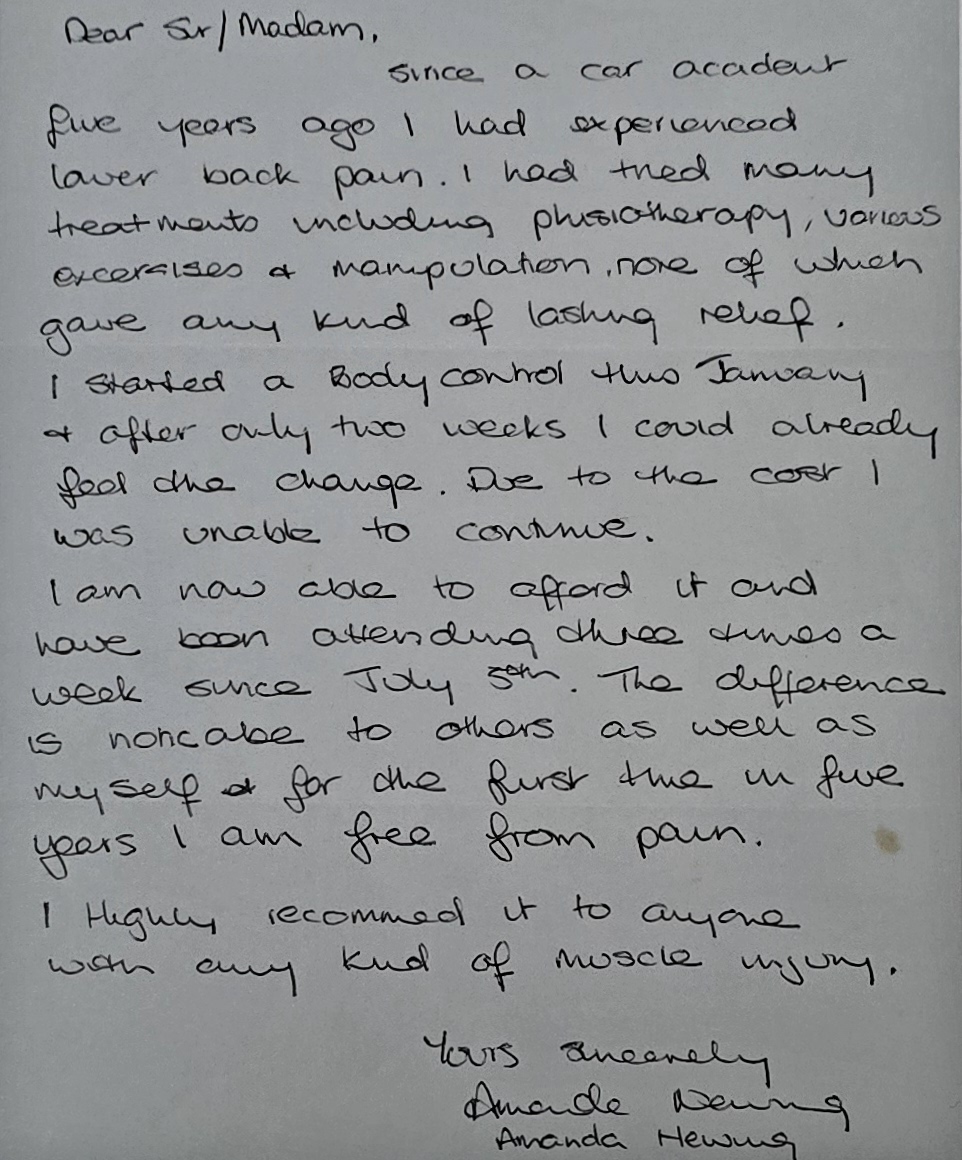 Dear Sir/Madam,
since a car acadent
five years ago I had experienced
lower back pain. I had tried many
treatments including physiotherapy, various
excersises & manipulation, none of which
gave any kind of lasting relief.
I started a Body control this January
& after only two weeks I could already
feel the change. Due to the cost I
was unable to continue.
I am now able to afford it and
have been attending three times a
week since July 5th. The difference
is noticable to others as well as
myself & for the first time in five
years I am free from pain.
I Highly recommed it to anyone
with any kind of muscle injury.
Yours sincerely
Amanda
Amanda Hewing